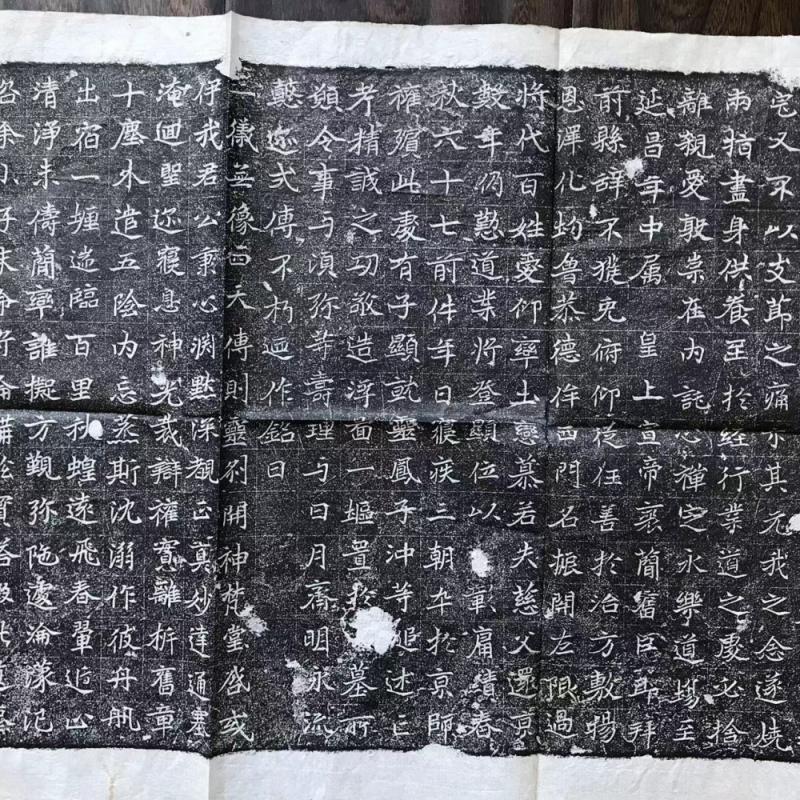 又不以支節之痛示其无我之念遂燒
兩指盡身供養至於經行業道之處必捨
離親愛敦崇在內託心禪定永樂道場至
延昌年中属 皇上宣帝衰簡舊臣 拜
前縣辞不獲免俯仰從任善於治方敷揚
恩澤化均魯恭德侔西門名振開左限過
將代百姓愛仰率土戀慕若夫慈父還京
數年仍懃道業將登顯位以 庸績春
秋六十七前件年日寢疾三朝卒於京師
權殯此處有子顯就靈鳳子沖等追述亡
考精誠之功敬造浮啚一塸置於墓所
願令事与湏弥等壽理与日月齊明永流
懿迹式傳不朽迺作銘曰
二儀無像 天傳則靈 開神梵堂啓或
伊我君公秉心淵默深視正真妙達通塞
淹迴聖迹寢息神光義辯權實離析舊章
十塵水造五陰內忘烝斯沈溺作彼舟航
出宿一 臨百里秋蝗遠飛春翬近止
清淨未儔簡率誰擬方覲弥陁遽淪濛汜